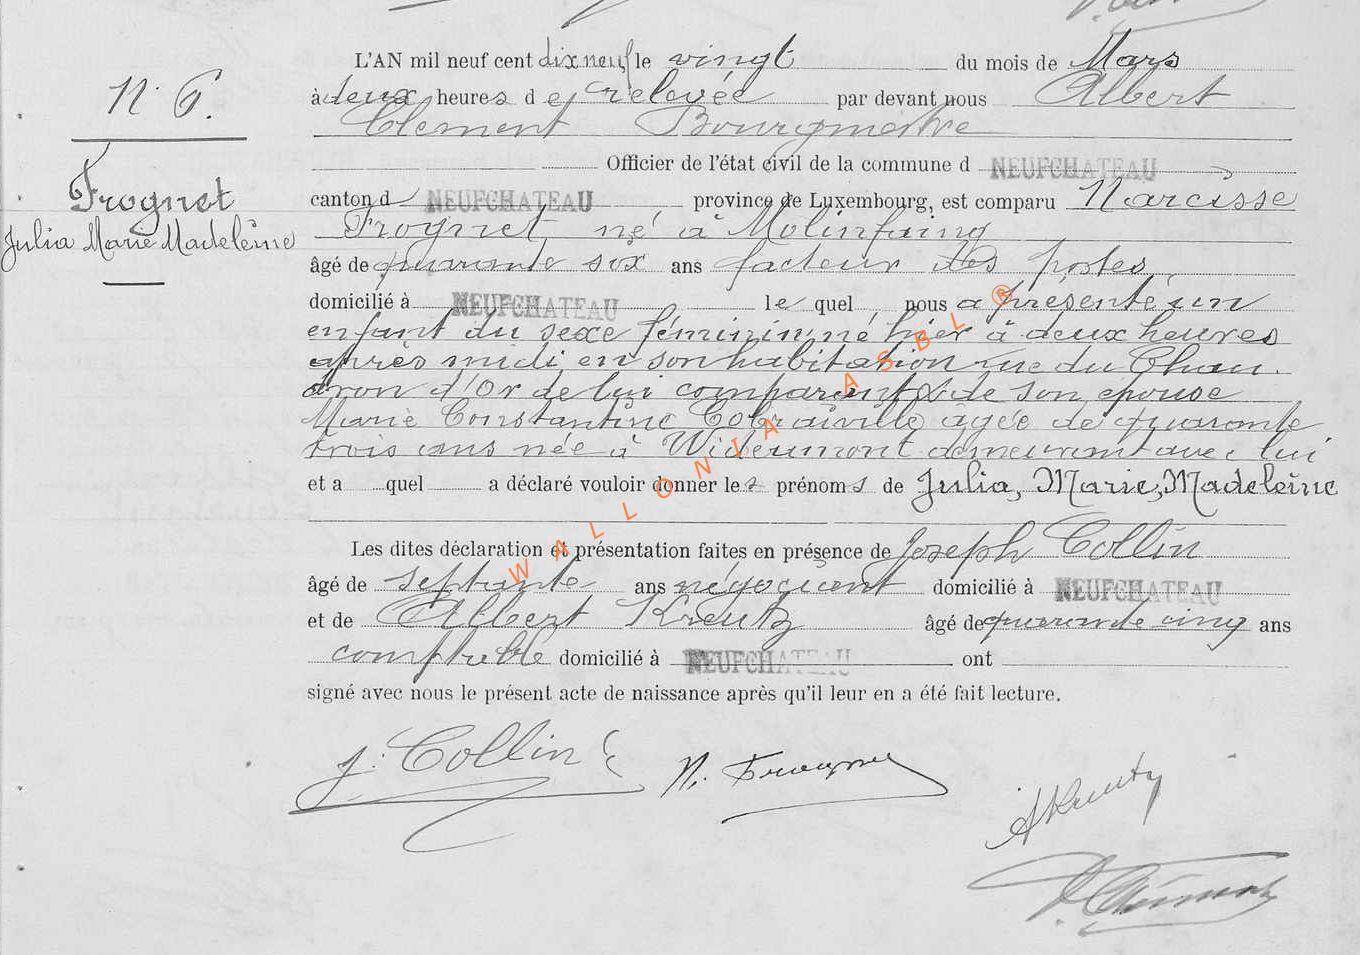 N. 6.
Frognet
Julia Marie Madeleine
L'AN mil neuf cent dix neuf le vingt du mois de Mars
à deux heures de relevée par devant nous Albert
Clement Bourgmestre
Officier de l'état civil de la commune d NEUFCHATEAU
canton d NEUFCHATEAU province de Luxembourg, est comparu Narcisse
Frognet né à Molinfaing
âgé de quarante six ans facteur des postes,
domicilié à NEUFCHATEAU le quel, nous a présenté un
enfant du sexe féminin né hier à deux heures
après midi en son habitation rue du Chau-
dron d'Or de lui comparant & de son épouse
Marie Constantine agée de quarante
trois ans née à Wideumont demeurant avec lui
et a quel a déclaré vouloir donner les prénoms de Julia, Marie, Madeleine
Les dites déclaration et présentation faites en présence de Joseph Collin
âgé de septante ans négociant domicilié à NEUFCHATEAU
et de Albert Kreutz âgé de quarante cinq ans
comptable domicilié à NEUFCHATEAU ont
signé avec nous le présent acte de naissance après qu'il leur en a été fait lecture.
J. Collin N. Frognet
A Kreutz
A. Clément
WALLONIA ASBL ®